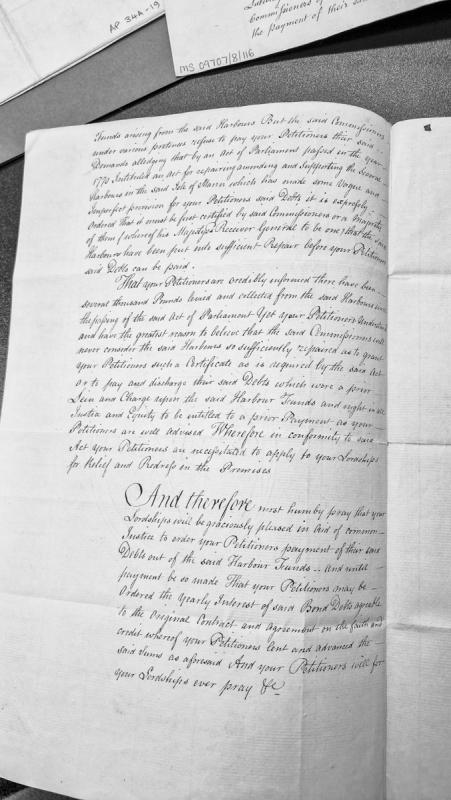 AP 34A-19
Commissioners of
the payment of their sa
MS 09707/8/116
Funds arising from the said Harbours But the said Commissioners
under various pretences refuse to pay your Petitioners their said
Demands alledging that by an Act of Parliament passed in the year
1770 Intituled an act for repairing amending and Supporting the several
Harbours in the said Isle of Mann which has made some Vague and
Imperfect provision for your Petitioners said Debts it is expressly
Ordered that it must be first certified by said Commissioners or a Majority
of them (whereof his Majestys Receiver General to be one) that the said
Harbours have been put into sufficient Repair before your Petitioners
said Debts can be paid.
That your Petitioners are credibly informed there have been
several thousand Pounds levied and collected from the said Harbours since
the passing of the said Act of Parliament Yet your Petitioners understand
and have the greatest reason to believe that the said Commissioners will
never consider the said Harbours so sufficiently repaired as to grant
your Petitioners such a Certificate as is required by the said Act
or to pay and discharge their said Debts which were a prior
Lien and Charge upon the said Harbour Funds and right in all
Justice and Equity to be entitled to a prior Payment as your
Petitioners are well advised Wherefore in conformity to said
Act your Petitioners are necessitated to apply to your Lordships
for Relief and Redress in the Premises
And therefore most humbly pray that your
Lordships will be graciously pleased in aid of common
Justice to order your Petitioners payment of their said
Debts out of the said Harbour Funds - and until
payment be so made That your Petitioners may be
Ordered the Yearly Interest of said Bond Debts agreable
to the Original Contract and agreement on the faith and
credit whereof your Petitioners lent and advanced the
said Sums as aforesaid And your Petitioners will for
your Lordships ever pray &c